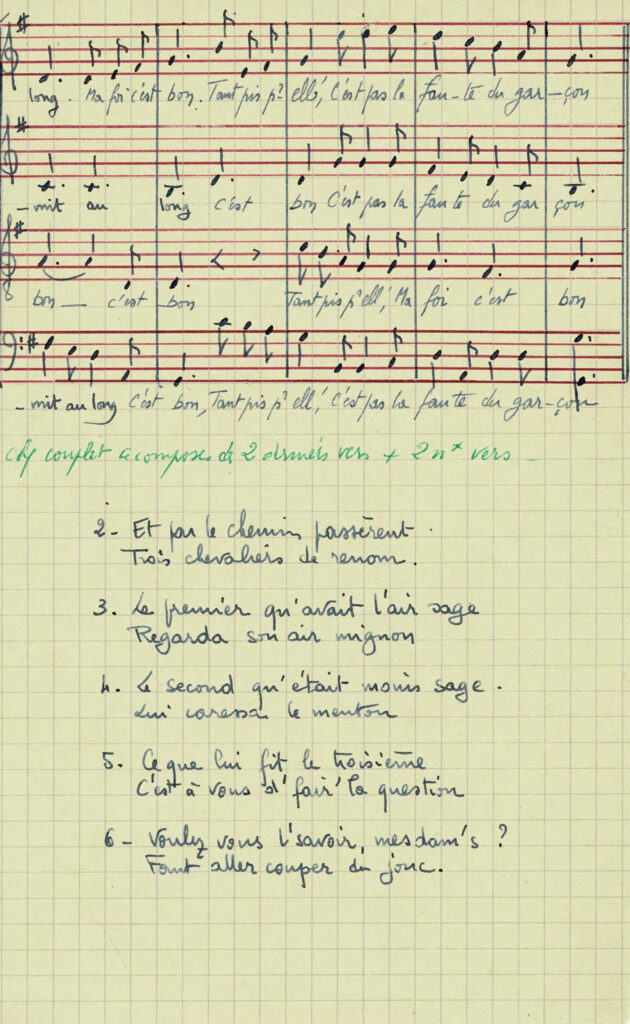 long. Ma foi c'est bon. Tant pis p? ell', C'est pas la fau-te du gar-çon
-mit au long c'est bon C'est pas la faute du gar çon
bon — c'est bon Tant pis p'ell', Ma foi c'est bon
-mit au long C'est bon, Tant pis p? ell', C'est pas la faute du gar-çon
couplet compose de 2 derniers vers + 2 nx vers -
2 - Et par le chemin passèrent
Trois chevaliers de renom.
3. Le premier qu'avait l'air sage
Regarda son air mignon
4. Le second qu'était moins sage.
Lui caressa le menton
5. Ce que lui fit le troisième
C'est à vous d'fair' la question
6 - Voulez vous l'savoir, mesdam's ?
Faut aller couper du jonc.